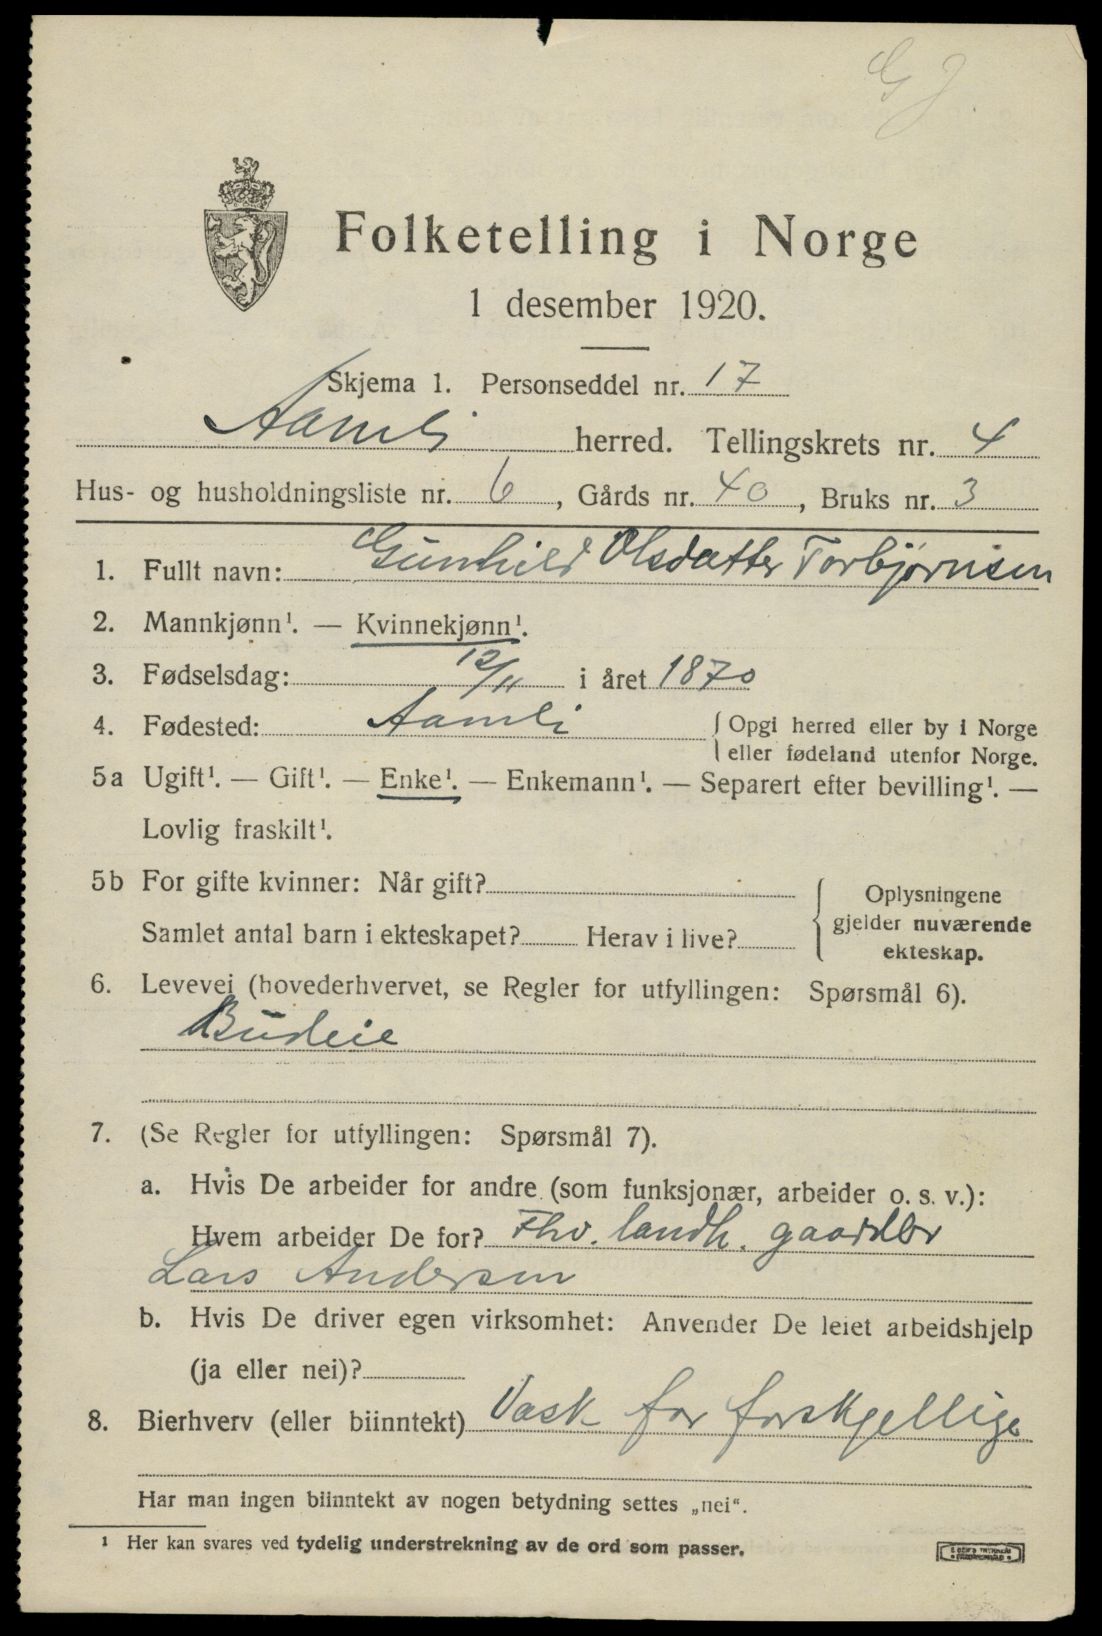 G J
Folketelling i Norge
1 desember 1920.
Skjema 1. Personseddel nr. 17
Aamli herred. Tellingskrets nr. 4
Hus- og husholdningsliste nr. 6, Gårds nr. 40, Bruks nr. 3
1. Fullt navn: Gunhild Olsdatter Torbjørnsen
2. Mannkjønn¹. — Kvinnekjønn¹.
3. Fødselsdag: 12/11 i året 1870
4. Fødested: Aamli { Opgi herred eller by i Norge
eller fødeland utenfor Norge.
5a Ugift¹. — Gift¹. — Enke¹. — Enkemann¹. — Separert efter bevilling¹. —
Lovlig fraskilt¹.
5b For gifte kvinner: Når gift?
Samlet antal barn i ekteskapet? Herav i live?
Oplysningene
gjelder nuværende
ekteskap.
6. Levevei (hovederhvervet, se Regler for utfyllingen: Spørsmål 6).
Budeie
7. (Se Regler for utfyllingen: Spørsmål 7).
a. Hvis De arbeider for andre (som funksjonær, arbeider o. s. v.):
Hvem arbeider De for? Fhv. landh. gaardbr
Lars Andersen
b. Hvis De driver egen virksomhet: Anvender De leiet arbeidshjelp
(ja eller nei)?
8. Bierhverv (eller biinntekt) Vask for forskjellige
Har man ingen biinntekt av nogen betydning settes „nei“.
¹ Her kan svares ved tydelig understrekning av de ord som passer.